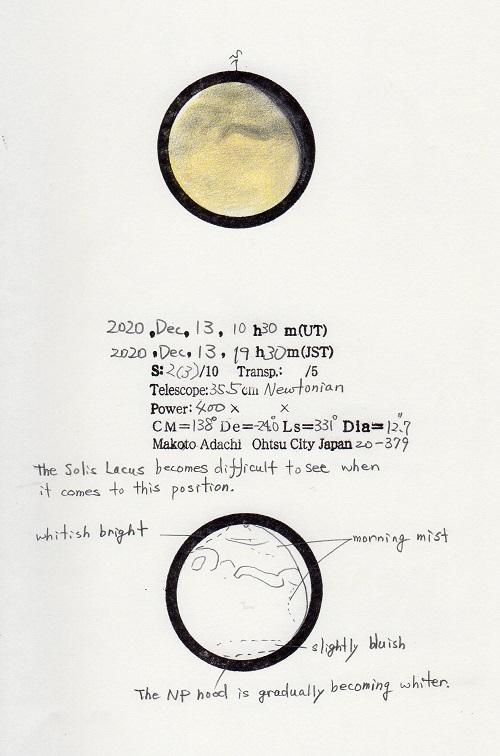 S
2020, Dec, 13, 10 h30 m(UT)
2020, Dec, 13, 19 h30m(JST)
S:2(3)/10 Transp.: /5
Telescope:35.5cm Newtonian
Power:400 x x
CM=138° De=-24.0 Ls=331° Dia=12.7"
Makoto Adachi Ohtsu City Japan 20-379
The Solis Lacus becomes difficult to see when
it comes to this position.
whitish bright
morning mist
slightly bluish
The NP hood is gradually becoming whiter.